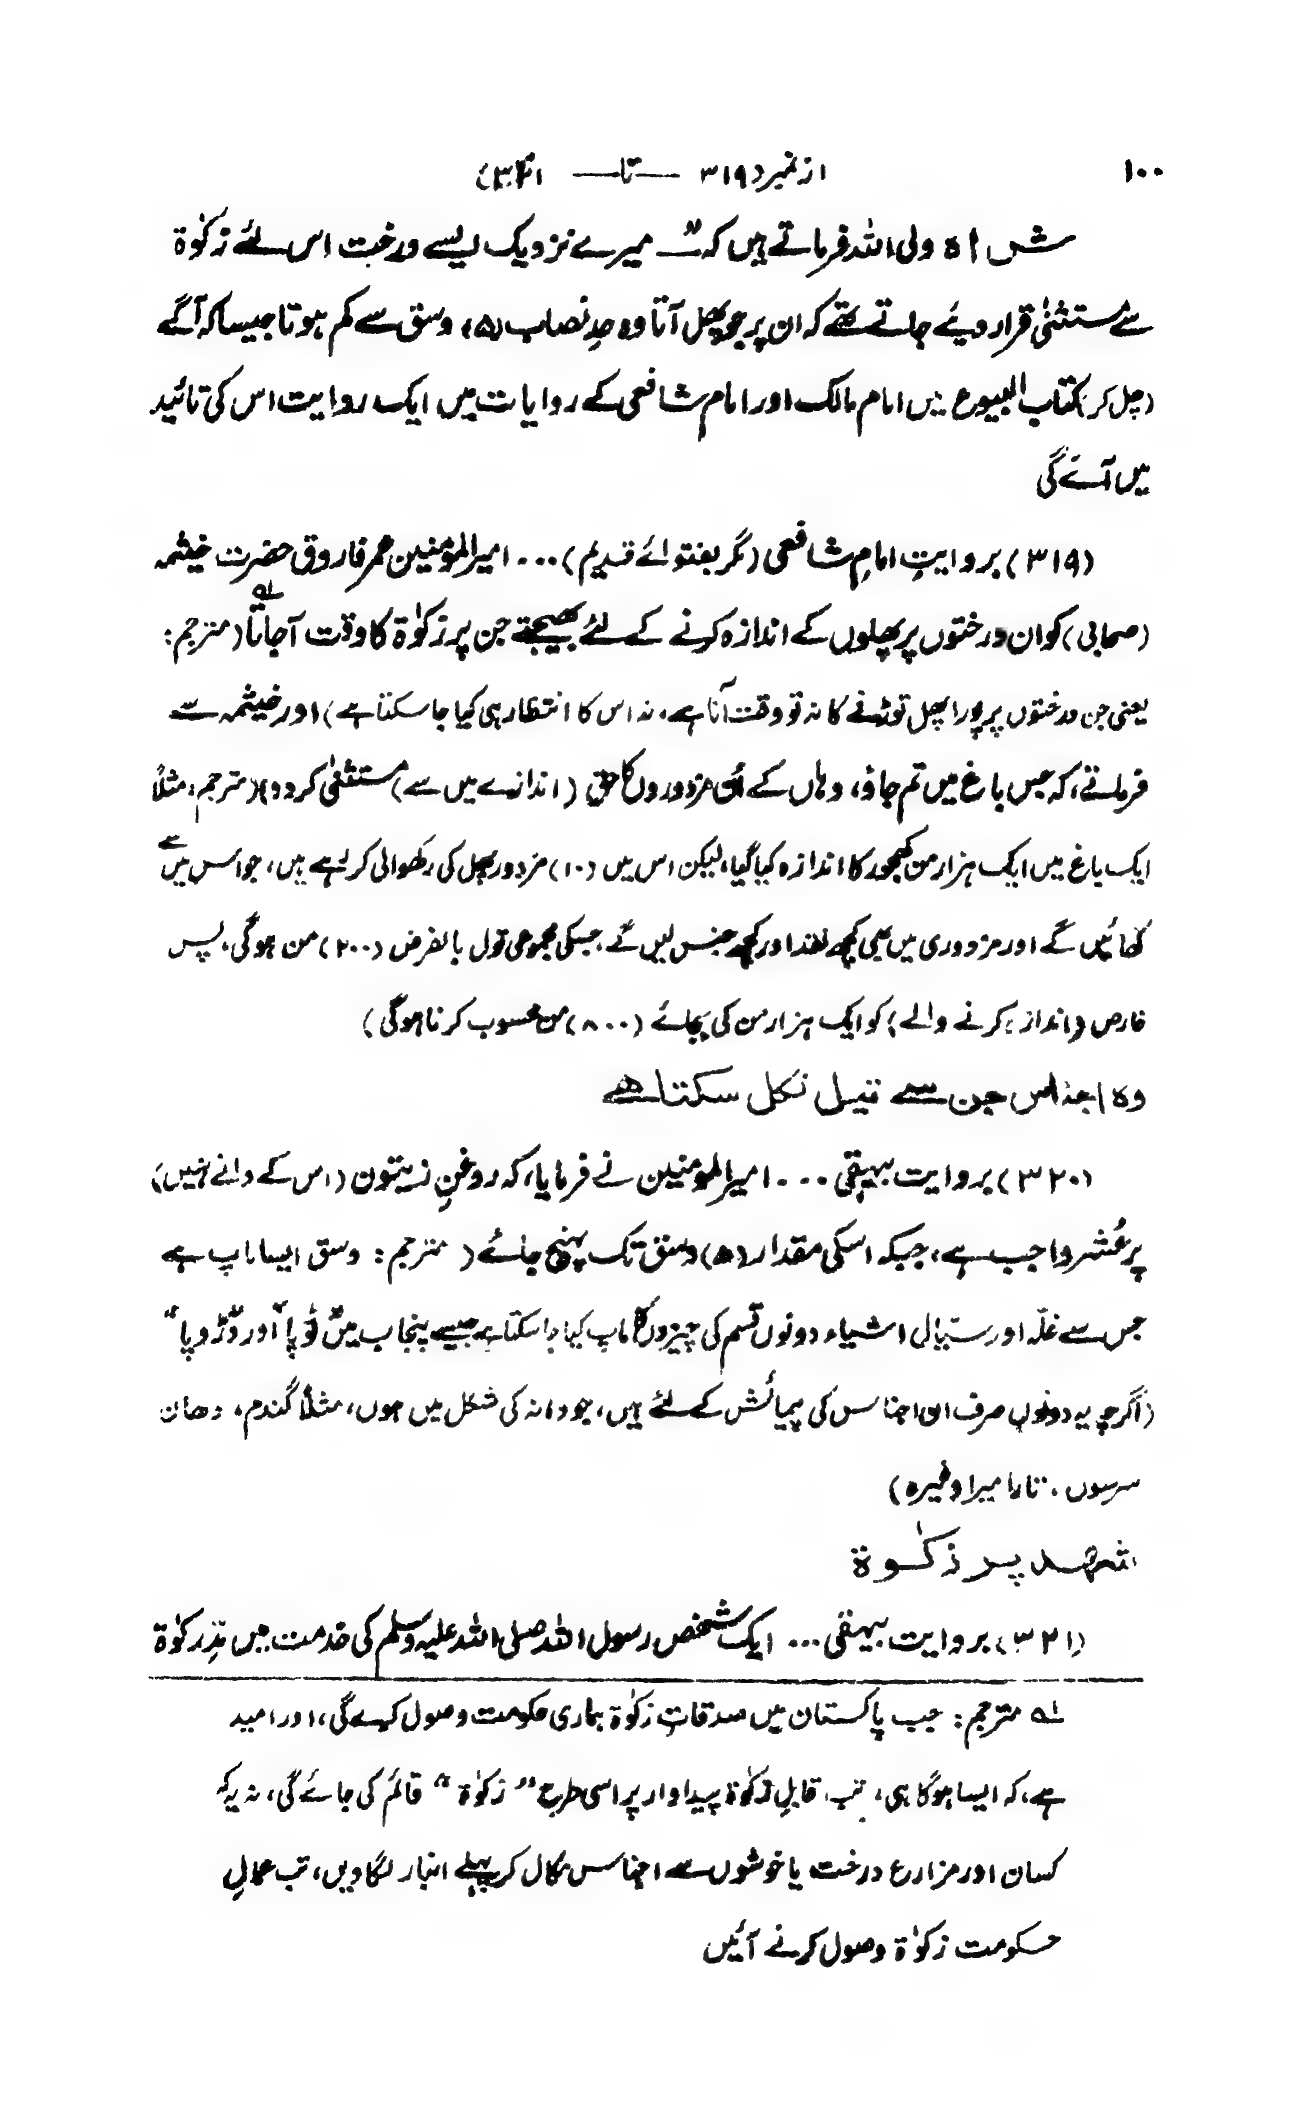 ۱۰۰ از نمبر (۳۱۹ — تا — ۳۲۱)
شاہ ولی اللہ فرماتے ہیں کہ " میرے نزدیک ایسے درخت اس لئے زکوٰۃ
سے مستثنیٰ قرار دیئے جاتے تھے کہ ان پر جو پھل آتا وہ حدِ نصاب (۵) وسق سے کم ہوتا جیسا کہ آگے
(چل کر) کتاب البیوع میں امام مالک اور امام شافعی کے روایات میں ایک روایت اس کی تائید
میں آئے گی
(۳۱۹) بروایتِ امامِ شافعی (مگر بفتوائے قدیم) ... امیرالمؤمنین عمر فاروق حضرت خیثمہ
(صحابی) کو ان درختوں پر پھلوں کے اندازہ کرنے کے لئے بھیجتے جن پر زکوٰۃ کا وقت آجاتا ؎۱ (مترجم:
یعنی جن درختوں پر پورا پھل توڑنے کا نہ تو وقت آنا ہے، نہ اس کا انتظار ہی کیا جا سکتا ہے) اور خیثمہ سے
فرماتے، کہ جس باغ میں تم جاؤ، وہاں کے اُن مزدوروں کا حق (اندازے میں سے) مستثنیٰ کر دو)(مترجم، مثلاً
ایک باغ میں ایک ہزار من کھجور کا اندازہ کیا گیا، لیکن اس میں (۱۰) مزدور پھل کی رکھوالی کر رہے ہیں، جو اس میں سے
کھائیں گے اور مزدوری میں بھی کچھ نقد اور کچھ جنس لیں گے، جسکی مجموعی تول بالفرض (۲۰۰) من ہوگی، پس
خارص (اندازہ کرنے والے) کو ایک ہزار من کی بجائے (۸۰۰) من محسوب کرنا ہوگی)
وہ اجناس جن سے تیل نکل سکتا ھے
(۳۲۰) بروایت بیہقی ... امیرالمؤمنین نے فرمایا، کہ روغنِ زیتون (اس کے دانے نہیں)
پر عُشر واجب ہے، جبکہ اسکی مقدار (۵) وسق تک پہنچ جائے (مترجم: وسق ایسا ماپ ہے
جس سے غلّہ اور سیّال اشیاء دونوں قسم کی چیزوں کا ماپ کیا جا سکتا ہے جیسے پنجاب میں "ٹوپا" اور "دڑوپا"
(اگرچہ یہ دونوں صرف ان اجناس کی پیمائش کے لئے ہیں، جو دانہ کی شکل میں ہوں، مثلاً گندم، دھان
سرسوں، تارامیرا وغیرہ)
شہد پر زکوٰۃ
(۳۲۱) بروایت بیہقی ... ایک شخص رسول اللہ صلی اللہ علیہ وسلم کی خدمت میں نذرِ زکوٰۃ
؎۱ مترجم: جب پاکستان میں صدقاتِ زکوٰۃ ہماری حکومت وصول کرے گی، اور امید
ہے، کہ ایسا ہوگا ہی، تب قابلِ زکوٰۃ پیداوار پر اسی طرح "زکوٰۃ" قائم کی جائے گی، نہ یہ کہ
کسان اور مزارع درخت یا خوشوں سے اجناس نکال کر پہلے انبار لگا دیں، تب عمالِ
حکومت زکوٰۃ وصول کرنے آئیں